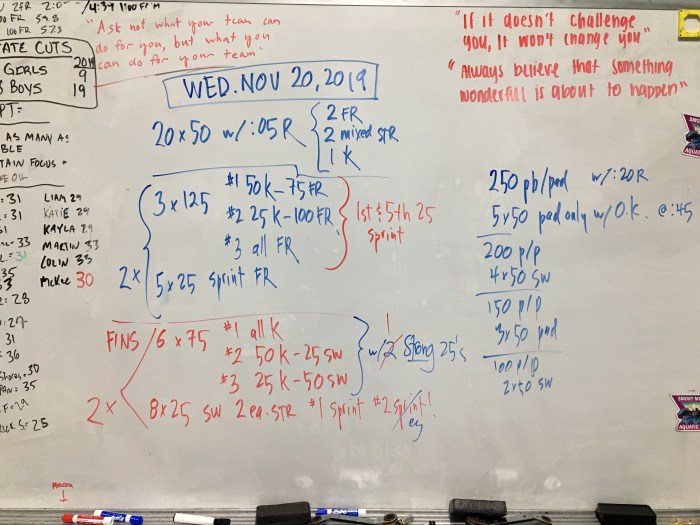 2FR 2:0
00 FR 59.8
100 FR 57.5
/4:39 1100 FR
"Ask not what your team can
do for you, but what you
can do for your team"
"If it doesn't challenge
you, It won't change you"
"Always believe that something
wonderful is about to happen"
TATE CUTS
2019
GIRLS 9
BOYS 19
PT:
AS MANY AS
BLE
TAIN FOCUS
: 31 LIAM 29
: 31 KATIE 29
31 KAYLA 29
33 MARTIN 33
L: 31 COLIN 33
35
33 McKee 30
2: 28
: 27
31
: 36
: 30
PAN: 35
F: 29
S: 25
WED. NOV 20, 2019
20 x 50 w/ :05 R
2 FR
2 mixed STR
1 K
3 x 125 #1 50 K-75 FR
#2 25 K-100 FR
#3 all FR
1st & 5th 25
sprint
2x
5 x 25 sprint FR
FINS 6 x 75 #1 all K
#2 50 K-25 SW
#3 25 K-50 SW
1
w/ 2 Stong 25's
2x
8 x 25 SW 2 ea. STR #1 sprint #2 sprint!
ey
250 pb/pad w/ :20 R
5x50 pad only w/ O.K. @ :45
200 p/p
4x50 SW
150 p/p
3x50 pad
100 p/p
2x50 SW
SMOKY M
AQUATIC